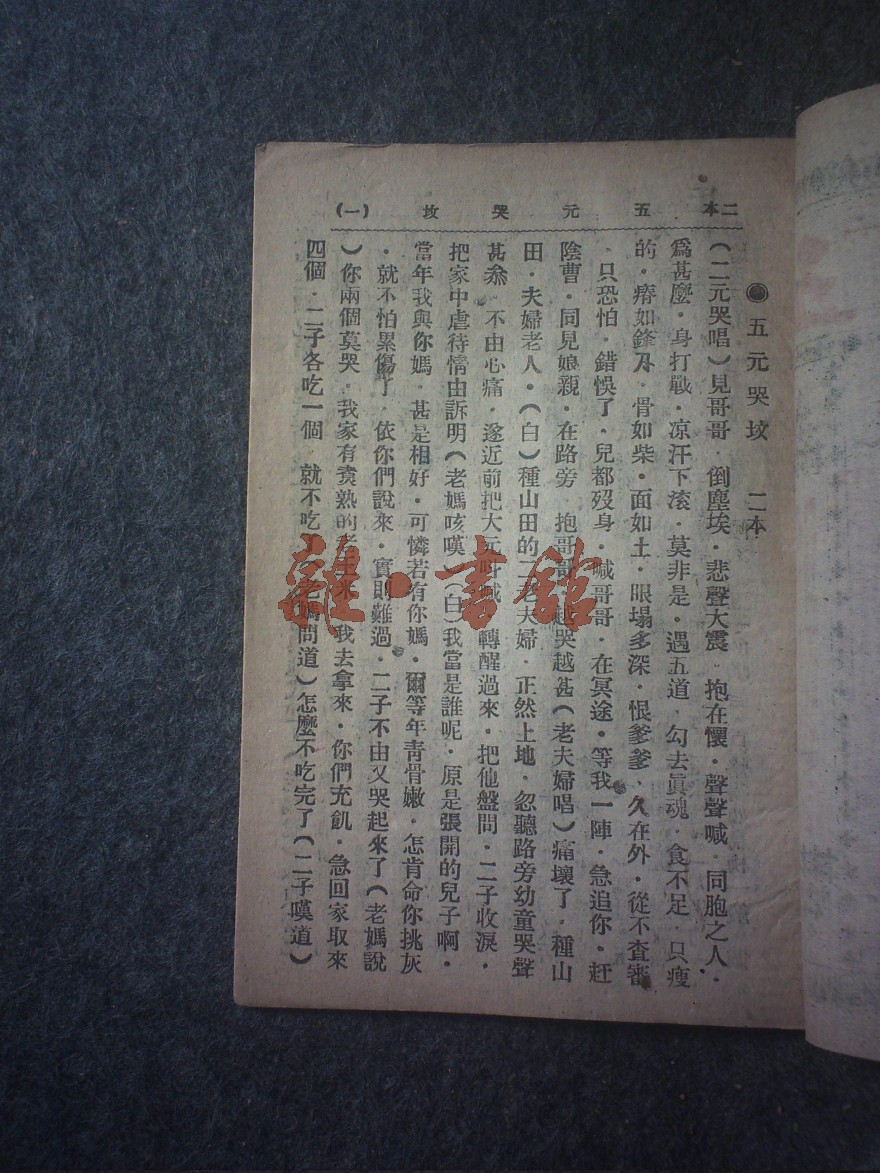 二本 五元哭坟 (一)
五元哭坟 二本
(二元哭唱)見哥哥·倒塵埃·悲聲大震·抱在懷·聲聲喊·同胞之人·
爲甚麼·身打戰·凉汗下滚·莫非是·遇五道·勾去眞魂·食不足·只瘦
的·瘠如鋒刀·骨如柴·面如土·眼塌多深·恨爹爹·久在外·從不查審
·只恐怕·錯悞了·兒都殁身·喊哥哥·在冥途·等我一陣·急追你·赶
陰曹·同見娘親·在路旁·抱哥哥·越哭越甚(老夫婦唱)痛壞了·種山
田·夫婦老人·(白)種山田的二老夫婦·正然上地·忽聽路旁幼童哭聲
甚·不由心痛·遂近前把大元呼喊·轉醒過來·把他盤問·二子收淚·
把家中虐待情由訴明(老媽咳嘆)(白)我當是誰呢·原是張開的兒子啊·
當年我與你媽·甚是相好·可憐若有你媽·爾等年靑骨嫩·怎肯命你挑灰
·就不怕累傷了·依你們說來·實則難過·二子不由又哭起來了(老媽說
)你兩個莫哭·我家有煑熟的老玉米·我去拿來·你們充飢·急回家取來
四個·二子各吃一個·就不吃了(老媽問道)怎麼不吃完了(二子嘆道)
雜·書館